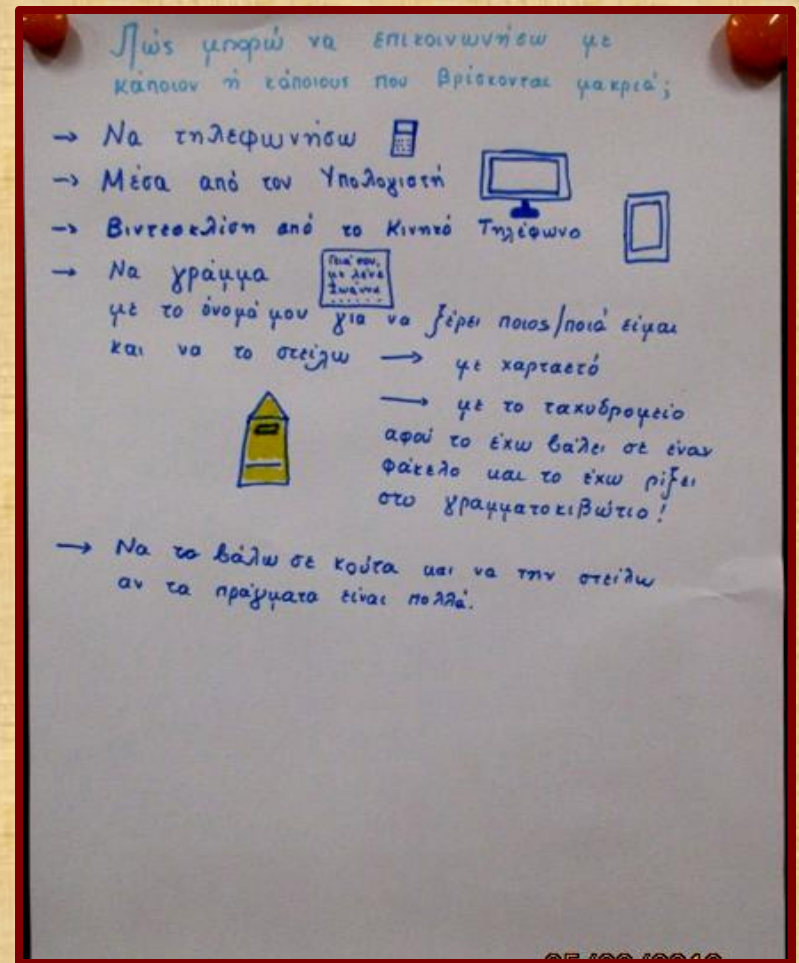 Πώς μπορώ να επικοινωνήσω με
κάποιον ή κάποιους που βρίσκονται μακριά;
→ Να τηλεφωνήσω
→ Μέσα από τον Υπολογιστή
→ Βιντεοκλίση από το Κινητό Τηλέφωνο
→ Να γράμμα
Γεια σου,
με λένε
Ιωάννα
με το όνομά μου για να ξέρει ποιος/ποιά είμαι
και να το στείλω → με χαρταετό
→ με το ταχυδρομείο
αφού το έχω βάλει σε έναν
φάκελο και το έχω ρίξει
στο γραμματοκιβώτιο!
→ Να το βάλω σε κούτα και να την στείλω
αν τα πράγματα είναι πολλά.